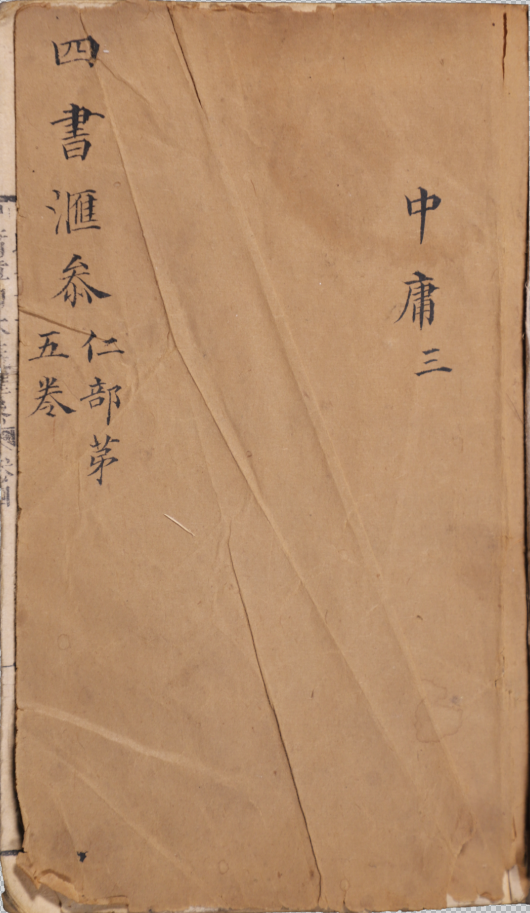 中庸三
四書滙叅
仁部苐
五卷